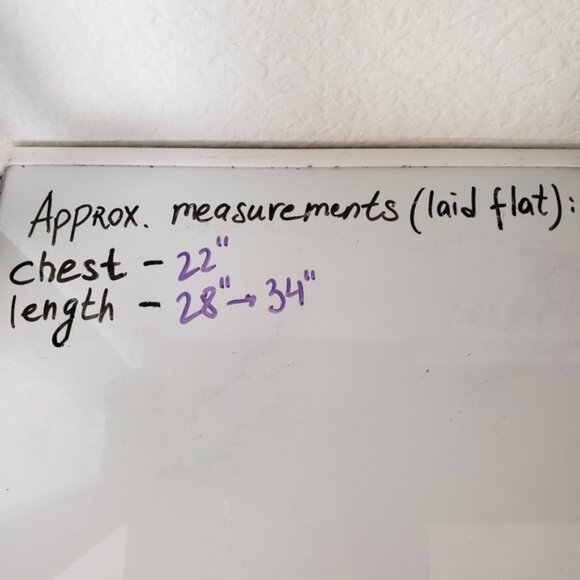 Approx. measurements (laid flat):
chest - 22"
length - 28" → 34"